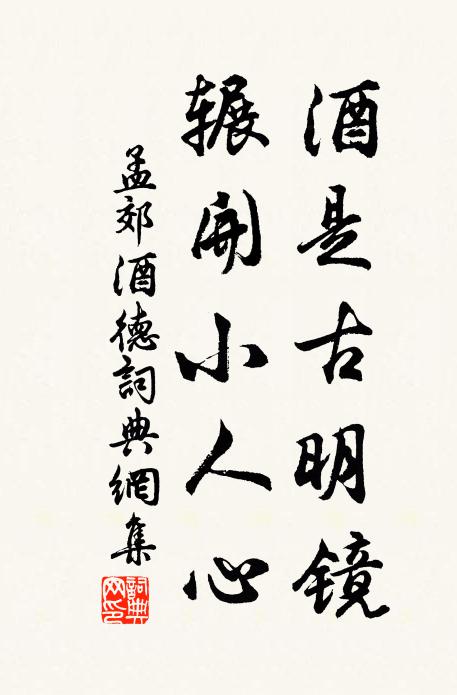 酒是古明镜
辗開小人心
孟郊酒德詞典網集
詞典网印